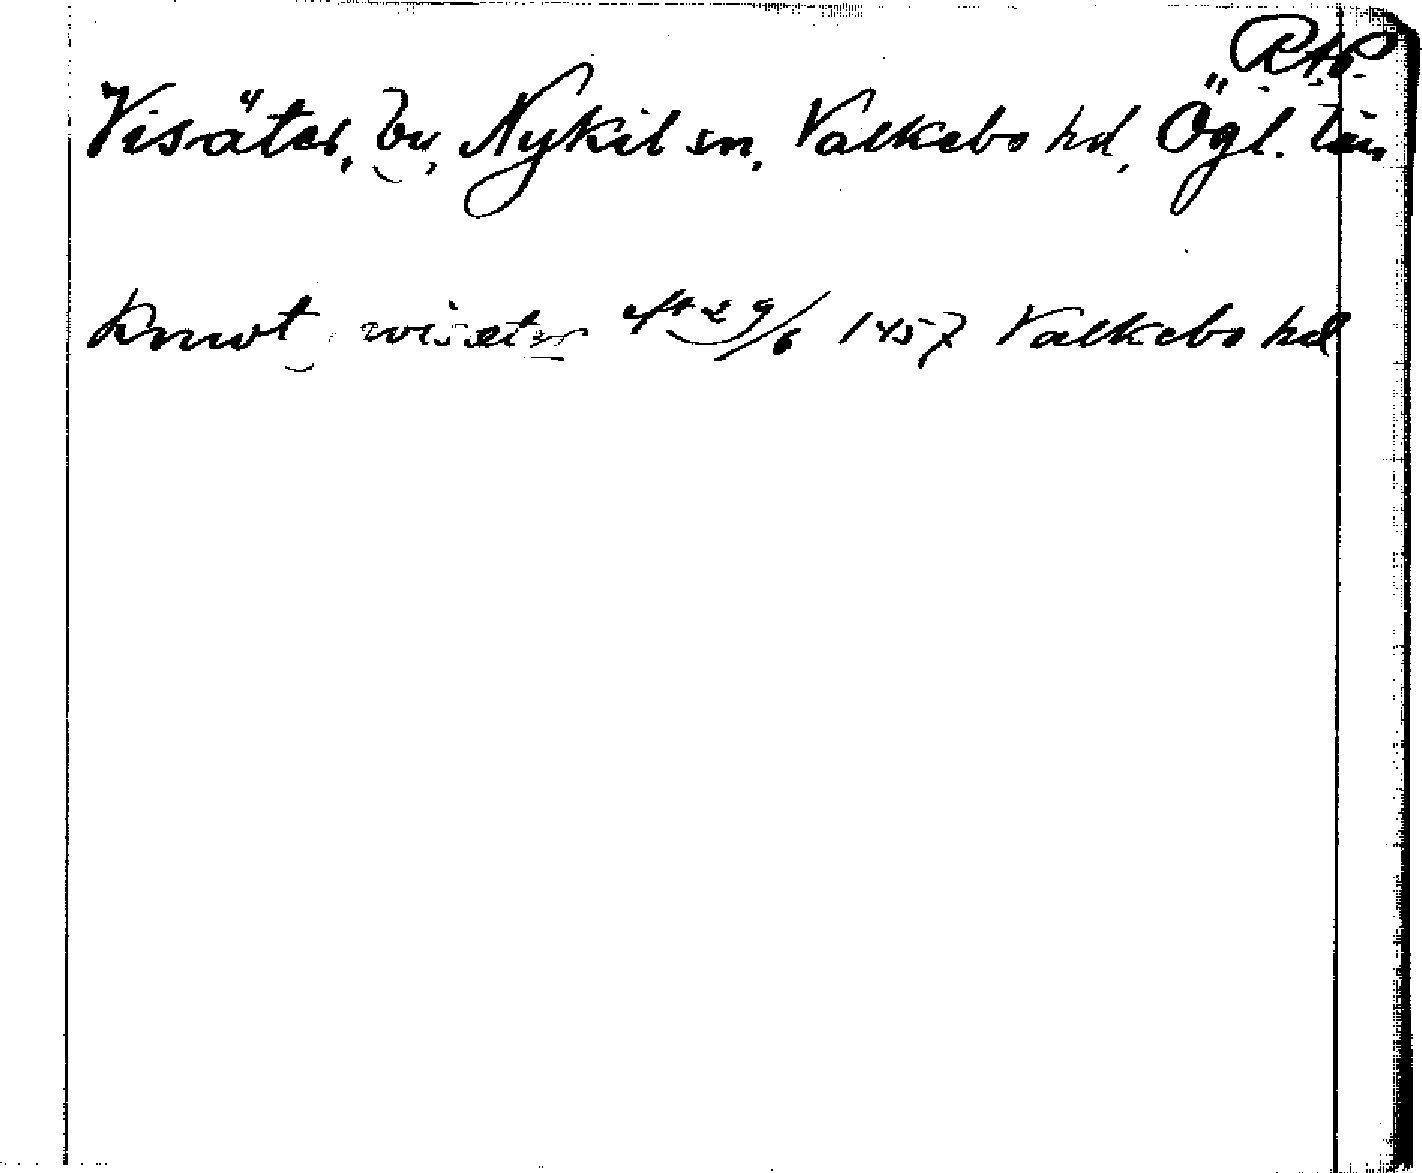 RAp.
Visäter, by, Nykil sn, Valkebo hd, Ögl. län
knwt wisæter 29/6 1457 Valkebo hd